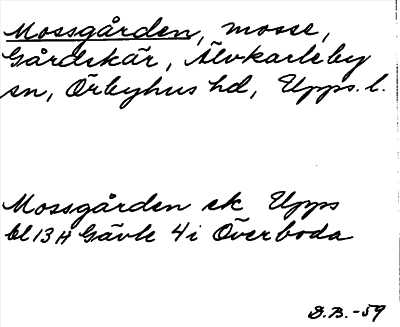 Mossgården, mosse,
Gårdskär, Älvkarleby
sn, Örbyhus hd, Upps. l.
Mossgården ek Upps
bl 13 H Gävle 4 i Överboda
D.B. -59